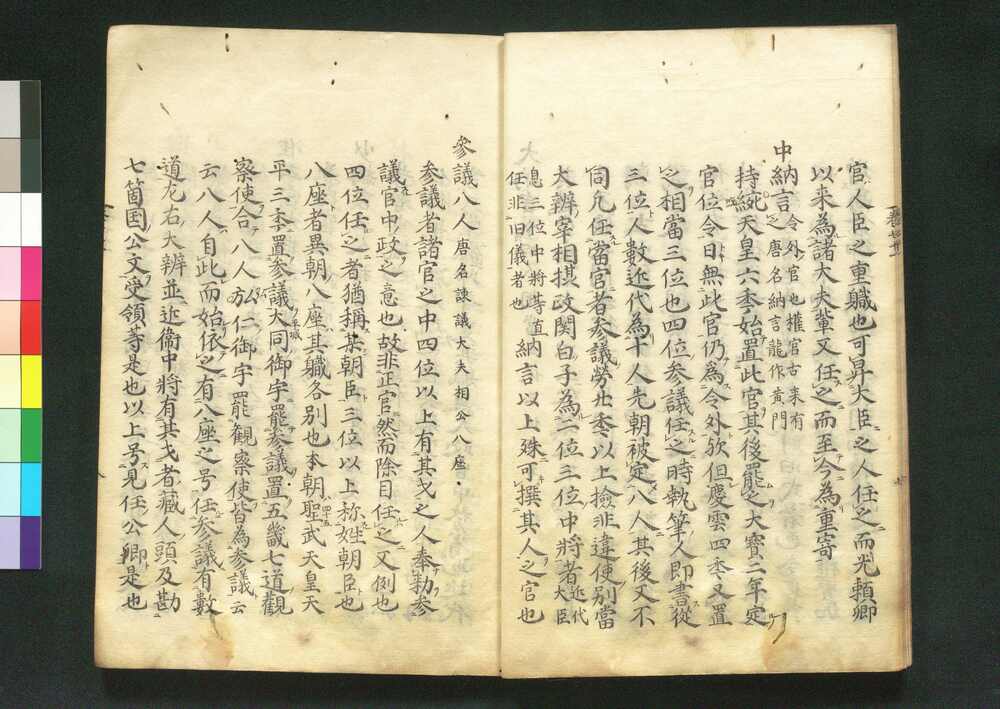 官人臣之重職也可昇大臣之人任之而光頼卿
以来為諸大夫輩又任之而至今為重寄
中納言 令外官也權官古来有
之唐名納言龍作黄門
持統天皇六季始置此官其後罷之大寶二年定
官位令日無此官仍為令外欤但慶雲四季又置
之相當三位也四位参議任之時執筆人即書從
三位人數近代為十人先朝被定八人其後又不
同凡任當官者参議勞十五季以上撿非違使別當
大辨宰相摂政関白子為二位三位中將者近代大臣
息三位中將等直
任非旧儀者也 納言以上殊可撰其人之官也
参議八人 唐名諫議大夫相公八座
参議者諸官之中四位以上有其才之人奉勅参
議官中政之意也故非正官然而除目任之又例也
四位任之者猶稱某朝臣三位以上称姓朝臣也
八座者異朝八座其職各別也本朝聖武天皇天
平三季置参議大同御宇罷参議置五畿七道觀
察使合八人弘仁御宇罷觀察使皆為参議云
云八人自此而始依之有八座之号任参議有數
道左右大辨並近衛中將有其才者藏人頭及勘
七箇国公文受領等是也以上号見任公卿是也